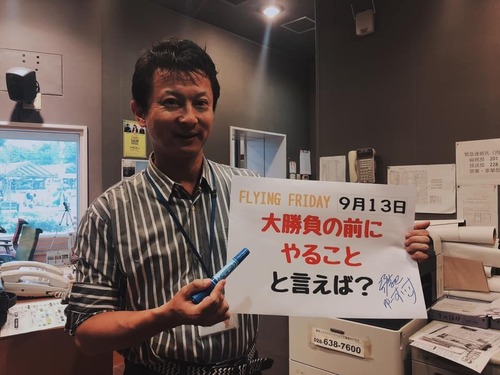 FLYING FRIDAY 9月13日
大勝負の前に
やること
と言えば?
028 638-7600